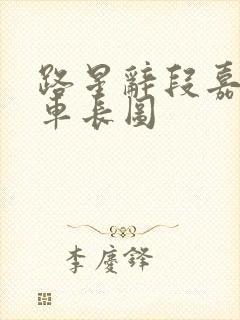 路星辭段嘉
車長圖
李慶鋒